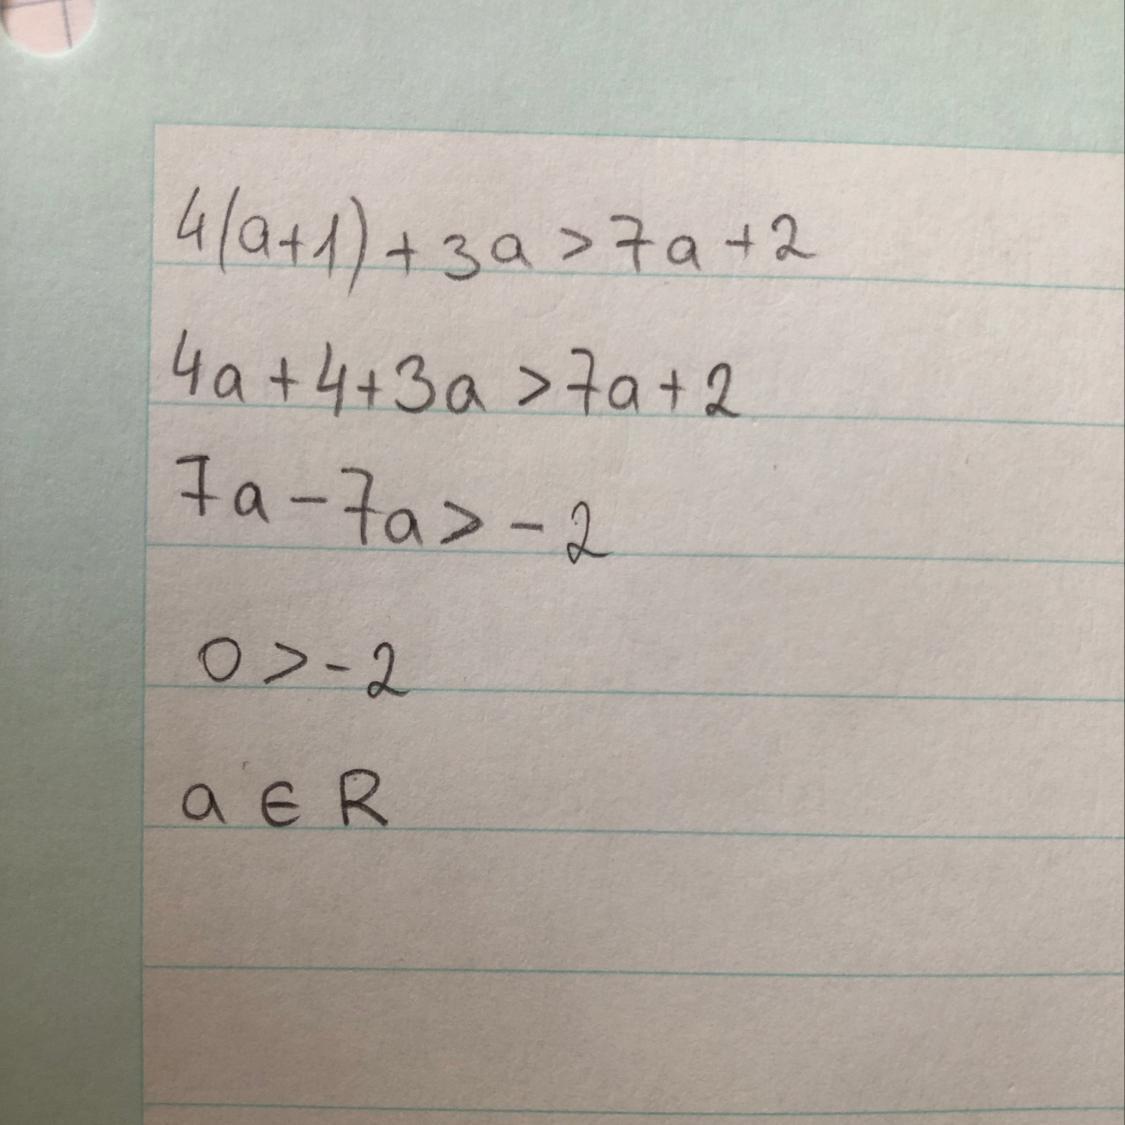 4(a+1)+3a>7a+2
4a+4+3a>7a+2
7a-7a>-2
0>-2
a∈R